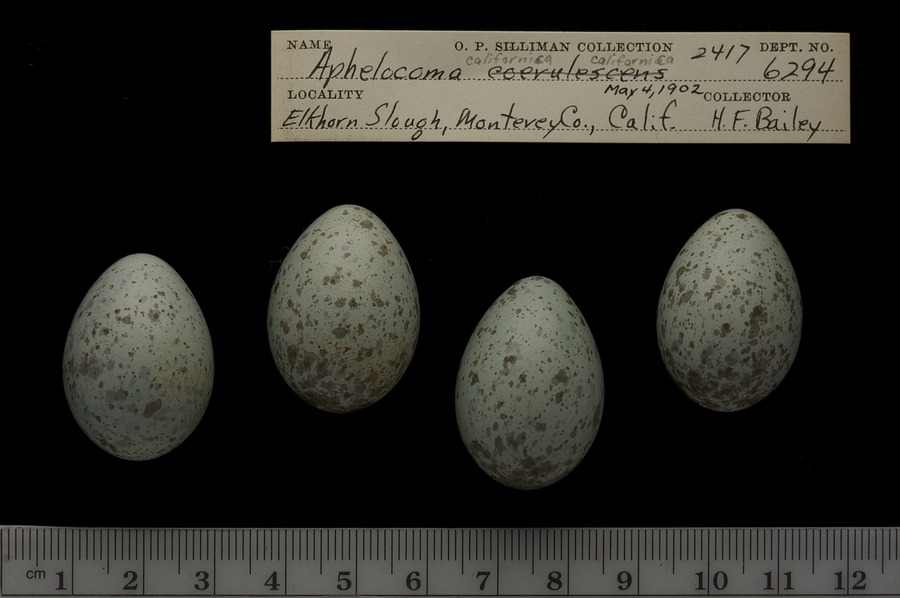 NAME O. P. SILLIMAN COLLECTION 2417 DEPT. NO.
californica californica
Aphelocoma coerulescens 6294
LOCALITY May 4, 1902 COLLECTOR
Elkhorn Slough, Monterey Co., Calif. H. F. Bailey
cm 1 2 3 4 5 6 7 8 9 10 11 12